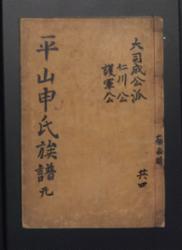 大司成公派
仁川公
護軍公
共四
平山申氏族譜